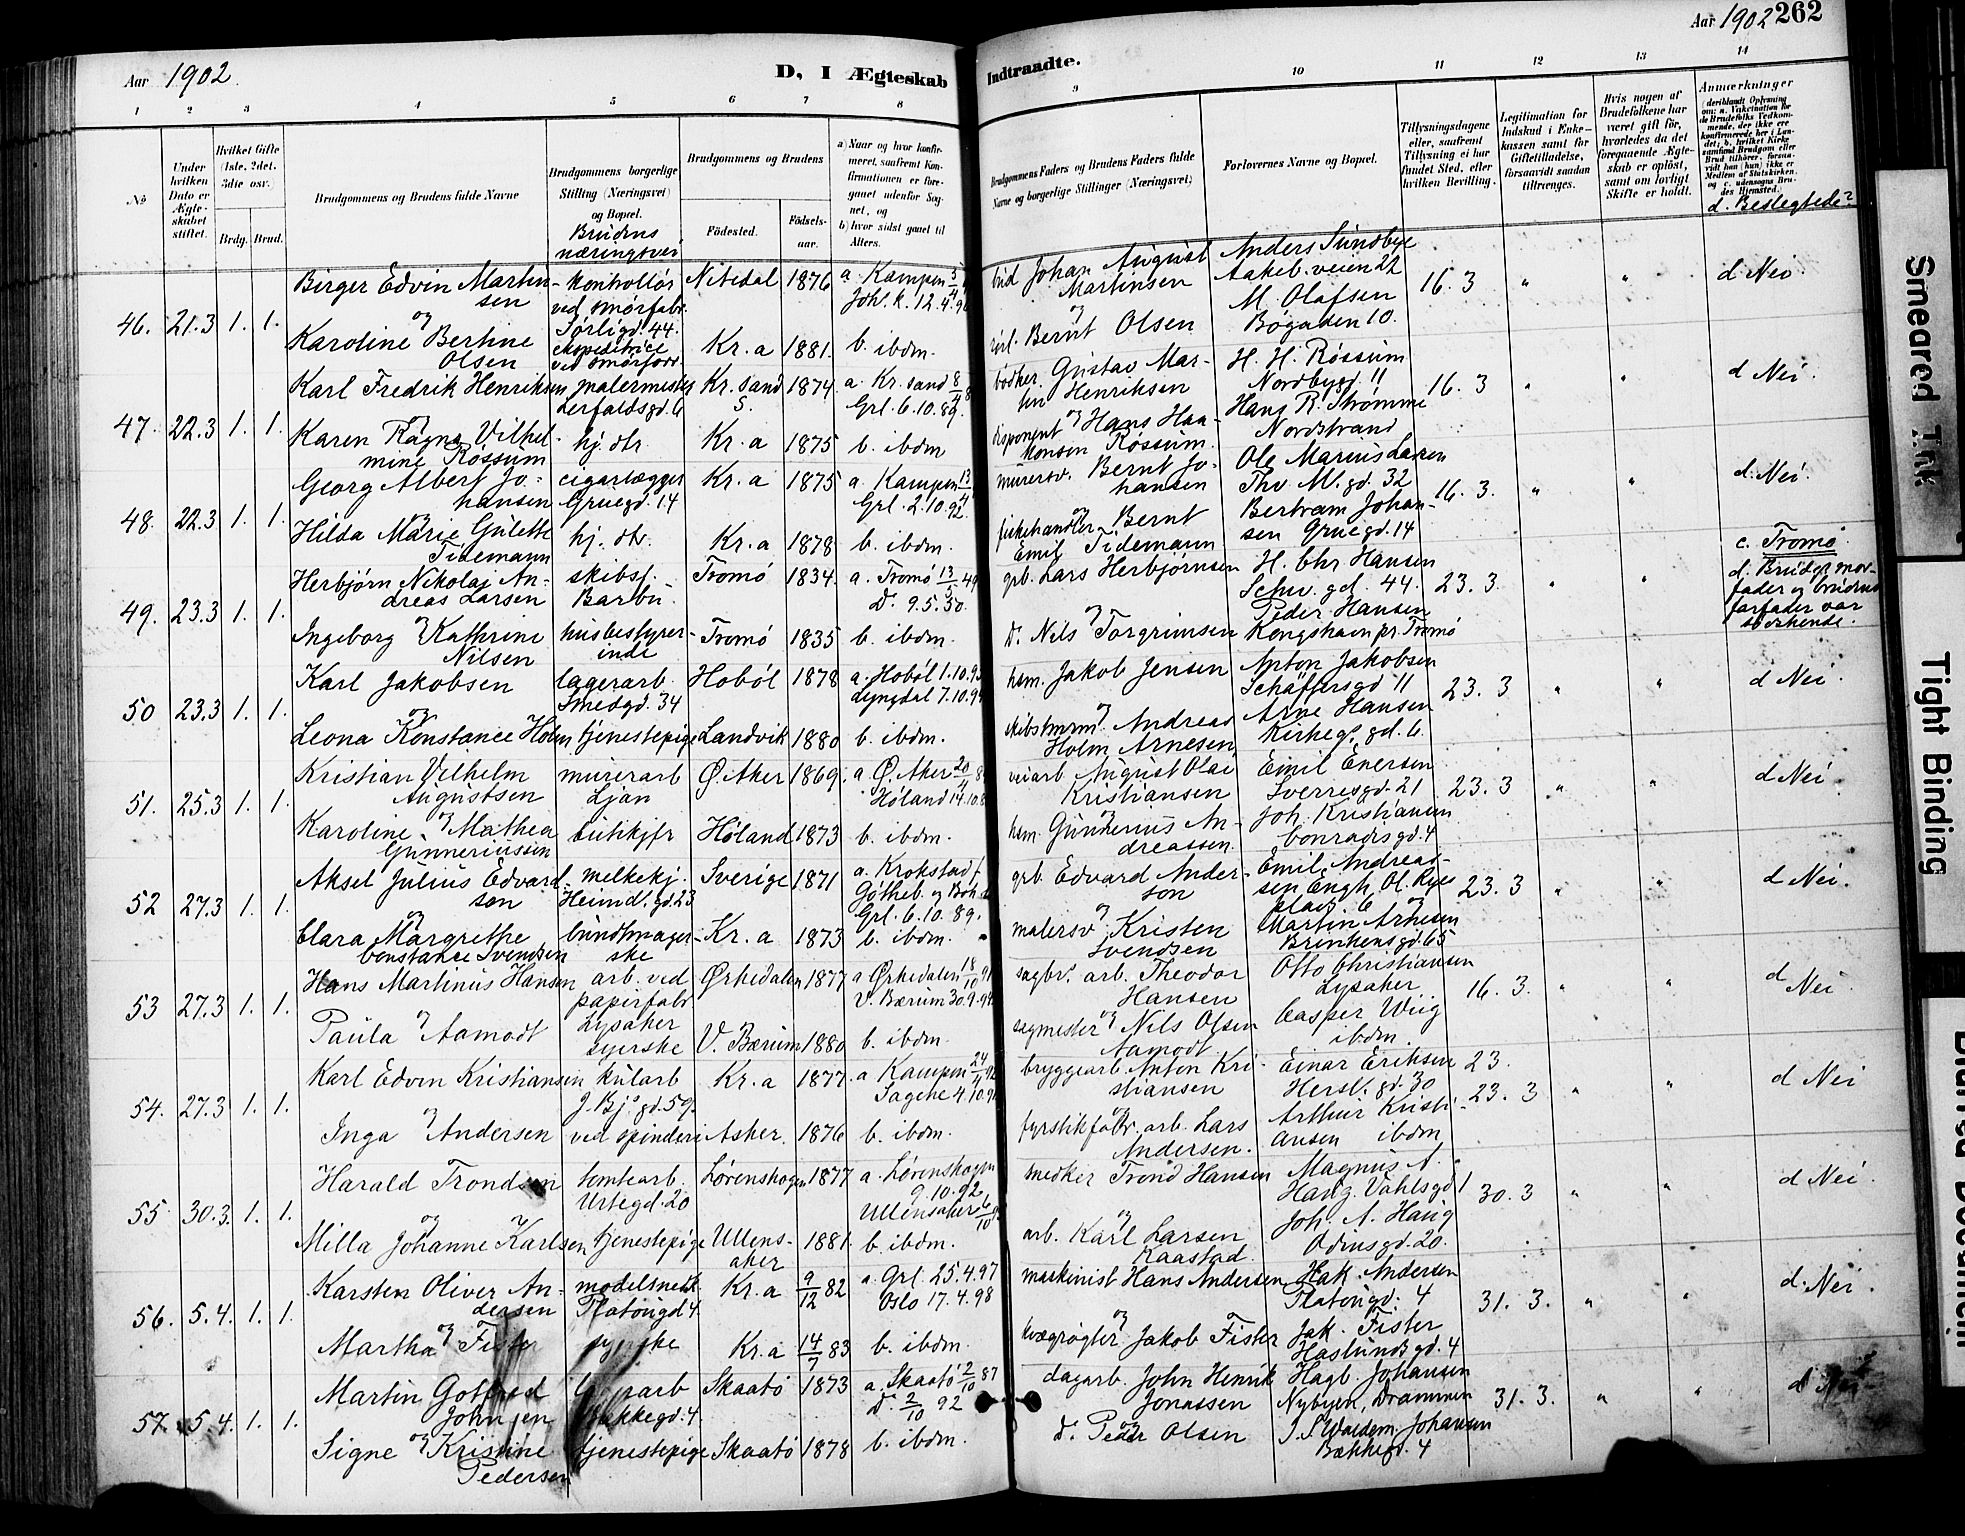 Aar 1902.
D, I Ægteskab Indtraadte.
Aar 1902 262
1 2 3 4 5 6 7 8 9 10 11 12 13 14
No
Under hvilken Dato er Ægteskabet stiftet.
Hvilket Gifte (1ste, 2det, 3die osv.)
Brdg. Brud.
Brudgommens og Brudens fulde Navne
Brudgommens borgerlige Stilling (Næringsvei) og Bopæl.
Brudens næringsvei
Brudgommens og Brudens
Fødested. Fødselsaar.
a) Naar og hvor konfirmeret, saafremt Konfirmationen er foregaaet udenfor Sognet, og
b) hvor sidst gaaet til Alters.
Brudgommens Faders og Brudens Faders fulde Navne og borgerlige Stillinger (Næringsvei)
Forlovernes Navne og Bopæl.
Tillysningsdagene eller, saafremt Tillysning ei har fundet Sted, efter hvilken Bevilling.
Legitimation for Indskud i Enkekassen samt for Giftetilladelse, forsaavidt saadan tiltrænges.
Hvis nogen af Brudefolkene har været gift før, hvorledes da det foregaaende Ægteskab er opløst, samt om lovligt Skifte er holdt.
Anmærkninger
d. Beslegtede?
46. 21.3 1. 1.
Birger Edvin Martinsen
kontrollör ved smörfabr. Sörligd. 44.
Nitedal 1876
a. Kampen
Joh. k. 12.4.
Johan August Martinsen
Anders Sundbye
Aakeb. veien 22
16.3 " "
d Nei.
og
Karoline Bertine Olsen
Kr.a 1881. b. ibdm.
Bernt Olsen
M. Olafsen
Bögaden 10.
47. 22.3 1. 1.
Karl Fredrik Henriksen
malermester
Kr.sand S. 1874
a. Kr.sand
Grl. 6.10.89.
bödker Gustav Martin Henriksen
H. H. Róssum
Nordbygd. 11
16.3 " "
d Nei.
og
Karen Ragna Vilhelmine Róssum
hj. dtr. Kr.a 1875 b. ibdm
disponent Hans Haakonsen Róssum
Hans R. Strömme
Nordstrand
48. 22.3 1. 1.
Georg Albert Johansen
cigarlægger
Gruegd. 14
Kr.a 1875
a. Kampen 13/4
Grl. 2.10.92.
murersv. Bernt Johansen
Ole Marius Larsen
Thv. M. gd. 32
16.3. " "
d. Nei.
og
Hilda Marie Gulette Tidemann
hj. dtr. Kr.a 1878 b. ibdm.
fiskehandler Bernt Emil Tidemann
Bertram Johansen Gruegd. 14
49. 23.3 1. 1.
Herbjörn Nikolai Andreas Larsen
skibsf. Barbu.
Tromö 1834.
a. Tromö 13/5 49
D. 9.5.50.
grb. Lars Herbjörnsen
H. Chr Hansen
Schw. gd. 44.
23.3. " "
c. Tromö.
d. Brudg. morfader og brudens farfader var söskende.
og
Ingeborg Kathrine Nilsen
husbestyrerinde
Tromö 1835 b. ibdm.
D. Nils Torgrimsen
Peder Hansen
Kongshavn pr. Tromö
50 23.3 1. 1.
Karl Jakobsen
lagerarb.
Smedgd. 34
Hoböl 1878
a. Hoböl 1.10.93
Lyngdal 7.10.9
hsm. Jakob Jensen
Anton Jakobsen
Schäffersgd 11
23.3 " "
d Nei.
og
Leona Konstance Holm
tjenestepige Landvik 1880 b. ibdm.
skibstmrm. Andreas Holm Arnesen
Arne Hansen
Kirkeg. gd. 6.
51. 25.3 1. 1.
Kristian Vilhelm Augustsen
murerarb Ljan
Ø. Aker 1869.
a. Ø. Aker 20/4
Höland 14.10.
veiarb August Olai Kristiansen
Emil Enersen
Sverresgd. 21
23.3 " "
d Nei.
og
Karoline Mathea Gunneriussen
butikjfr Höland 1873 b. ibdm
hsm. Gunnerius Andreassen
Joh. Kristiansen
Conradisgd. 4
52 27.3 1. 1.
Aksel Julius Edvardson
melkekj.
Heimd. gd. 23
Sverige 1871
a. Krokstad
Götheb. og
Grl. 6.10.89.
grb. Edvard Anderson
Emil Andreassen Engh, Ol. Ryes plads 6
23.3 " "
d Nei.
og
Clara Margrethe Constance Svendsen
buntmagerske Kr.a 1873 b. ibdm.
malersv Kristen Svendsen
Martin Arnesen
Brinkens gd. 65
53 27.3 1. 1.
Hans Martinus Hansen
arb. ved papirfabr Lysaker
Ørkedalen 1877
a Ørkedalen 18/10
V. Bærum 30.9.9
sagbr. arb. Theodor Hansen
Otto Christiansen
Lysaker
16.3. " "
d Nei.
og
Paula Aamodt
syerske V. Bærum 1880 b. ibdm.
sagmester Nils Olsen Aamodt
Casper Wiig
ibdm.
54. 27.3 1. 1.
Karl Edvin Kristiansen
kularb
J. Bj. gd. 59.
Kr.a 1877.
a Kampen 24/4
Sagene 4.10.9
bryggearb. Anton Kristiansen
Einar Eriksen
Hersl. gd. 30
23.
23.3 " "
d Nei
og
Inga Andersen
ved spinderi Asker. 1876 b. ibdm.
fyrstikfabr. arb. Lars Andersen.
Arthur Kristiansen ibdm
55 30.3. 1. 1.
Harald Trondsen
tomtearb.
Urtegd. 20
Lörenskogen 1877
a. Lörenskogen
9.10.92
Ullensaker
snedker Trond Hansen
Magnus A.
Hang. Vahlsgd 1
30.3 " "
d Nei.
og
Milla Johanne Karlsen
tjenestepige Ullensaker 1881. b. ibdm.
arb. Karl Larsen Kaastad
Joh. A. Haug
Odinsgd. 20.
56. 5.4. 1. 1.
Karsten Oliver Andersen
modelsnedk
Platougd. 4
Kr.a 9/12 82
a. Grl. 25.4.97
Oslo 17.4.98
maskinist Hans Andersen
Hak. Andersen
Platougd. 4
31.3. " "
d. Nei.
og
Martha Fister
syerske Kr.a 14/7 83 b. ibdm.
kvægrögter Jakob Fister
Jak. Fister
Haslunds gd. 4
57. 5.4. 1. 1.
Martin Gotfred Johnsen
Bakkegd. 4.
Skaatö 1873
a. Skaatö 2/10 87
D. 2/10 92
dagarb. John Henrik Jonassen
Hagb. Johansen
Nybyen, Drammen
31.3. " "
d Nei
og
Signe Kristine Pedersen
tjenestepige Skaatö 1878 b. ibdm.
D. Peder Olsen
J. S. Waldem. Johansen
Bakkegd. 4
Smeared Ink
Tight Binding